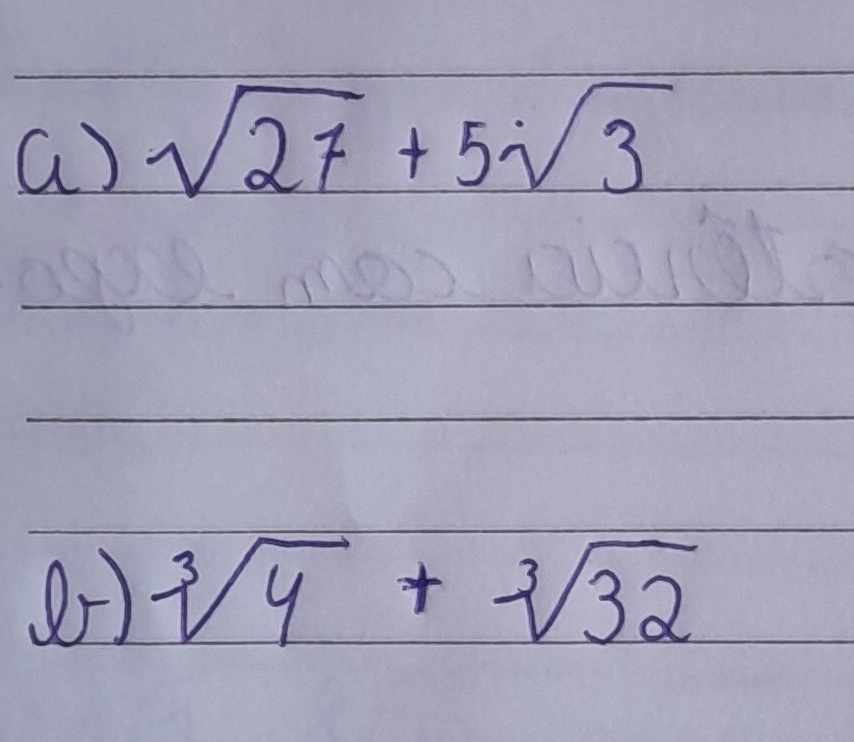 a) √27 + 5√3
b) ∛4 + ∛32